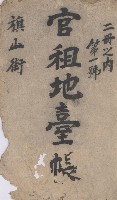 二冊之内
第一號
官租地臺帳
旗山街